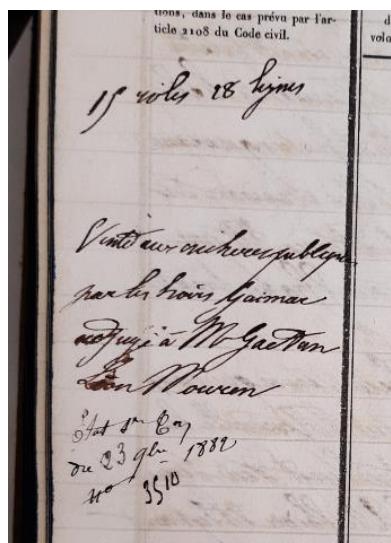 tions, dans le cas prévu par l'ar-
ticle 2108 du Code civil.
d
vol
15 roles 28 lignes
Vente aux encheres publiques
par les hoirs Gaimar
adjugé à Mr Gaetan
Léon Mouren
Etat sr
du 23 9bre 1882
no 3510